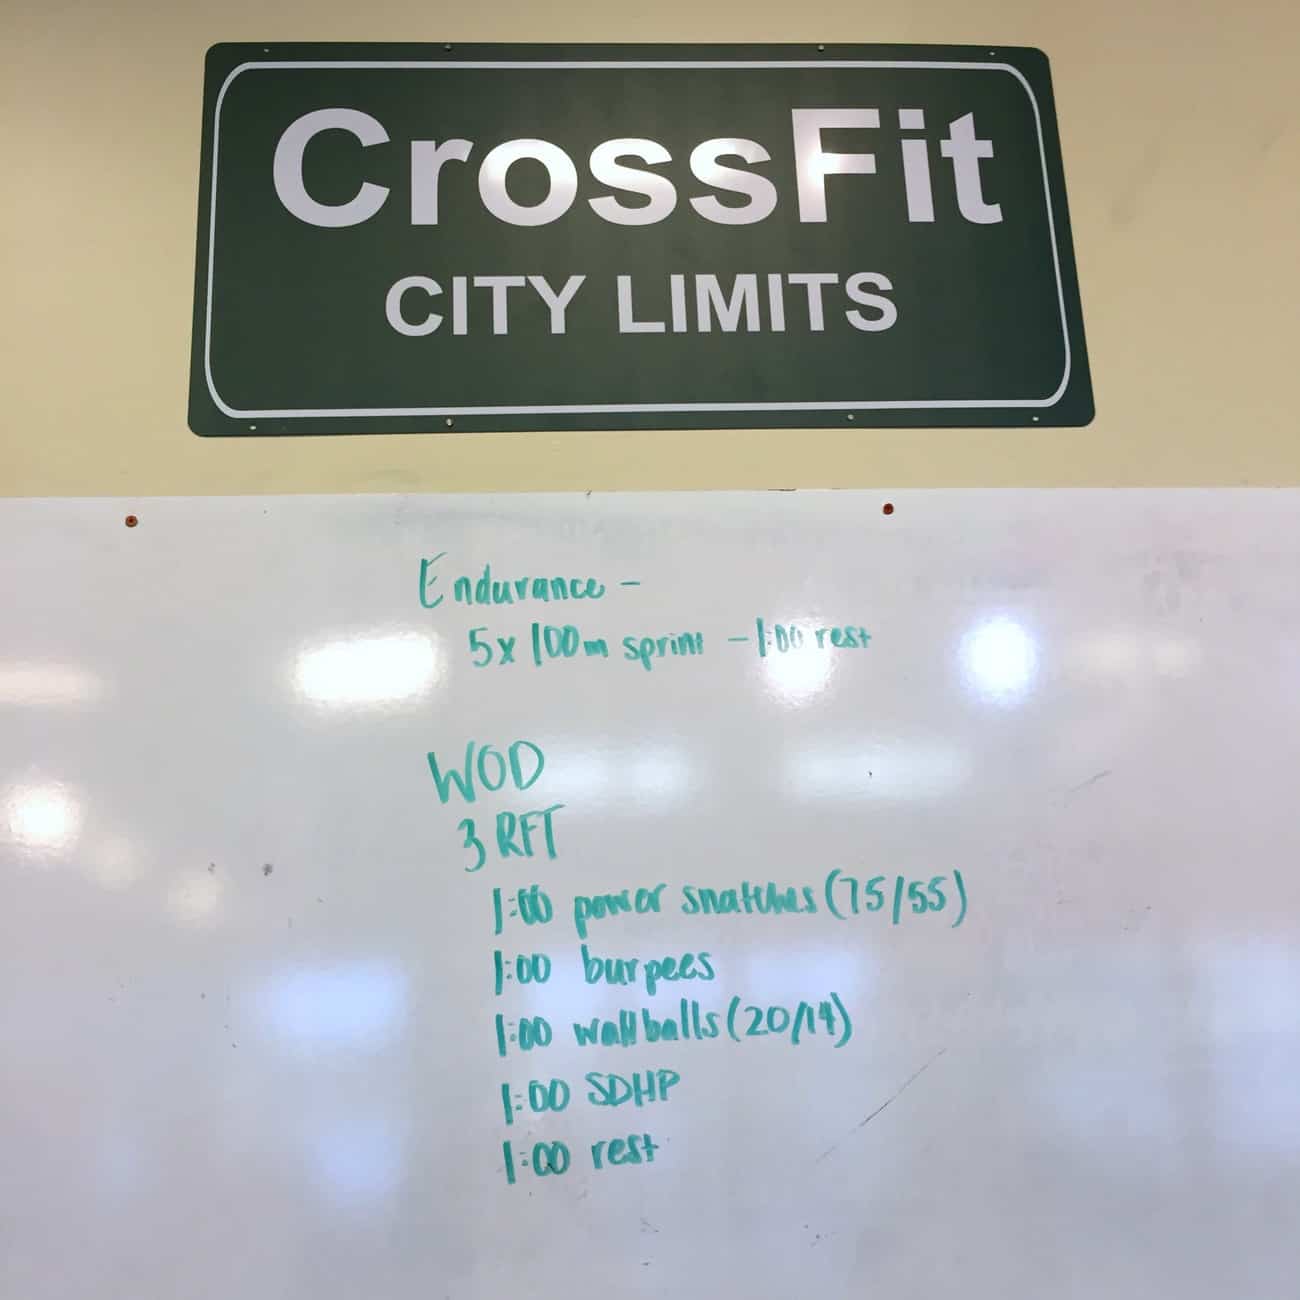 CrossFit
CITY LIMITS
Endurance -
5x 100m sprint - 1:00 rest
WOD
3 RFT
1:00 power snatches (75/55)
1:00 burpees
1:00 wallballs (20/14)
1:00 SDHP
1:00 rest